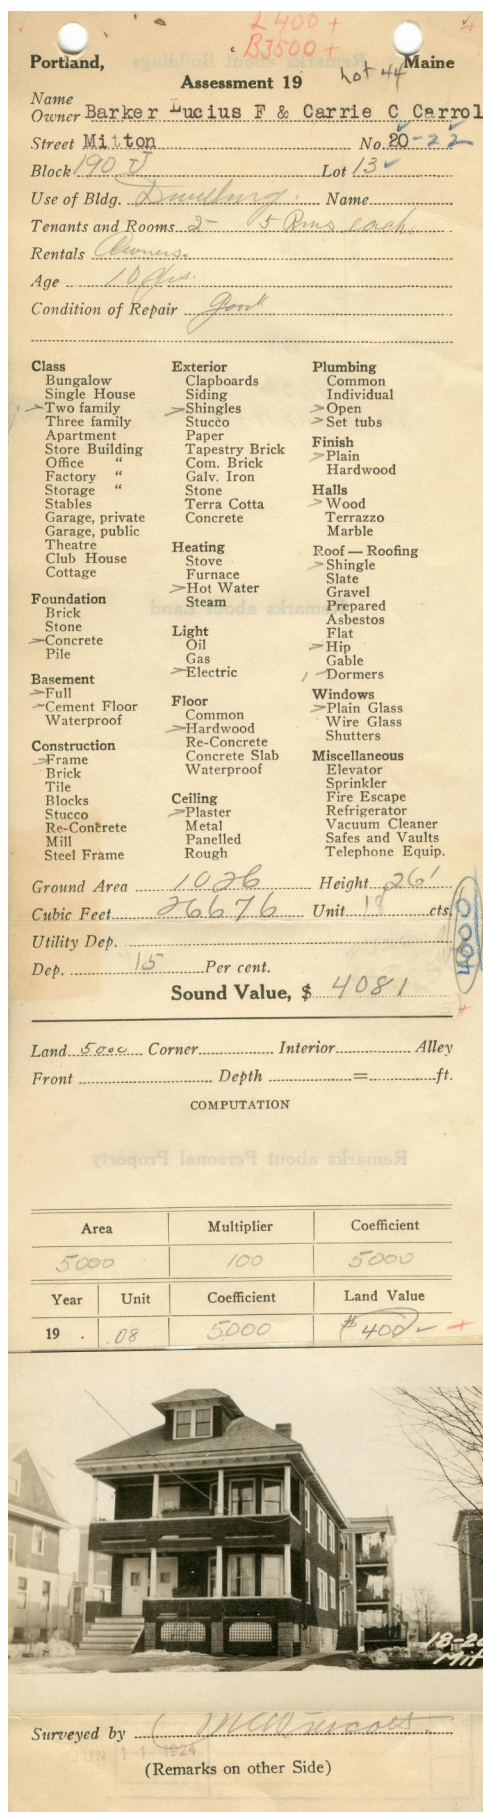 L 400 +
B 3500 +
+
Portland, Maine
Lot 44
Assessment 19
Name
Owner Barker Lucius F & Carrie C Carrol
Street Mitton No. 20-22
Block 190 J Lot 13
Use of Bldg. Dwelling. Name
Tenants and Rooms 2- 5 Rms each.
Rentals Owners.
Age 10 yrs.
Condition of Repair Good
Class
Bungalow
Single House
Two family
Three family
Apartment
Store Building
Office "
Factory "
Storage "
Stables
Garage, private
Garage, public
Theatre
Club House
Cottage
Foundation
Brick
Stone
Concrete
Pile
Basement
Full
Cement Floor
Waterproof
Construction
Frame
Brick
Tile
Blocks
Stucco
Re-Concrete
Mill
Steel Frame
Exterior
Clapboards
Siding
Shingles
Stucco
Paper
Tapestry Brick
Com. Brick
Galv. Iron
Stone
Terra Cotta
Concrete
Heating
Stove
Furnace
Hot Water
Steam
Light
Oil
Gas
Electric
Floor
Common
Hardwood
Re-Concrete
Concrete Slab
Waterproof
Ceiling
Plaster
Metal
Panelled
Rough
Plumbing
Common
Individual
Open
Set tubs
Finish
Plain
Hardwood
Halls
Wood
Terrazzo
Marble
Roof — Roofing
Shingle
Slate
Gravel
Prepared
Asbestos
Flat
Hip
Gable
1 Dormers
Windows
Plain Glass
Wire Glass
Shutters
Miscellaneous
Elevator
Sprinkler
Fire Escape
Refrigerator
Vacuum Cleaner
Safes and Vaults
Telephone Equip.
Ground Area 1026 Height 26'
Cubic Feet 26676 Unit 18 cts.
4000
Utility Dep.
Dep. 15 Per cent.
Sound Value, $ 4081
+
Land 5000 Corner Interior Alley
Front Depth = ft.
COMPUTATION
Area Multiplier Coefficient
5000 100 5000
Year Unit Coefficient Land Value
19 .08 5000 $400 - +
18-20
Mit
Surveyed by
JUN 11 1924
(Remarks on other Side)